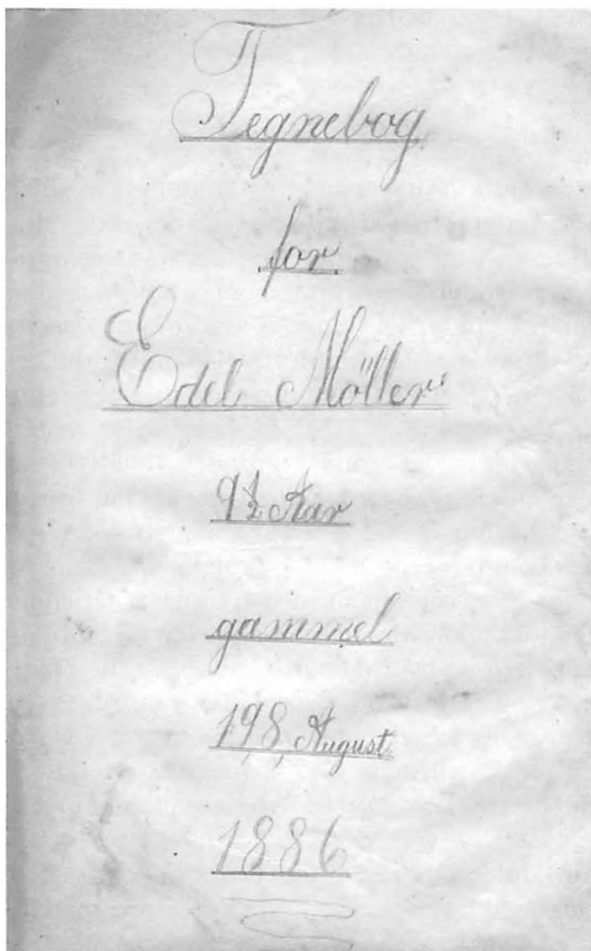 Tegnebog
for
Edel Möller
9½ Aar
gammel
19,8, August
1886